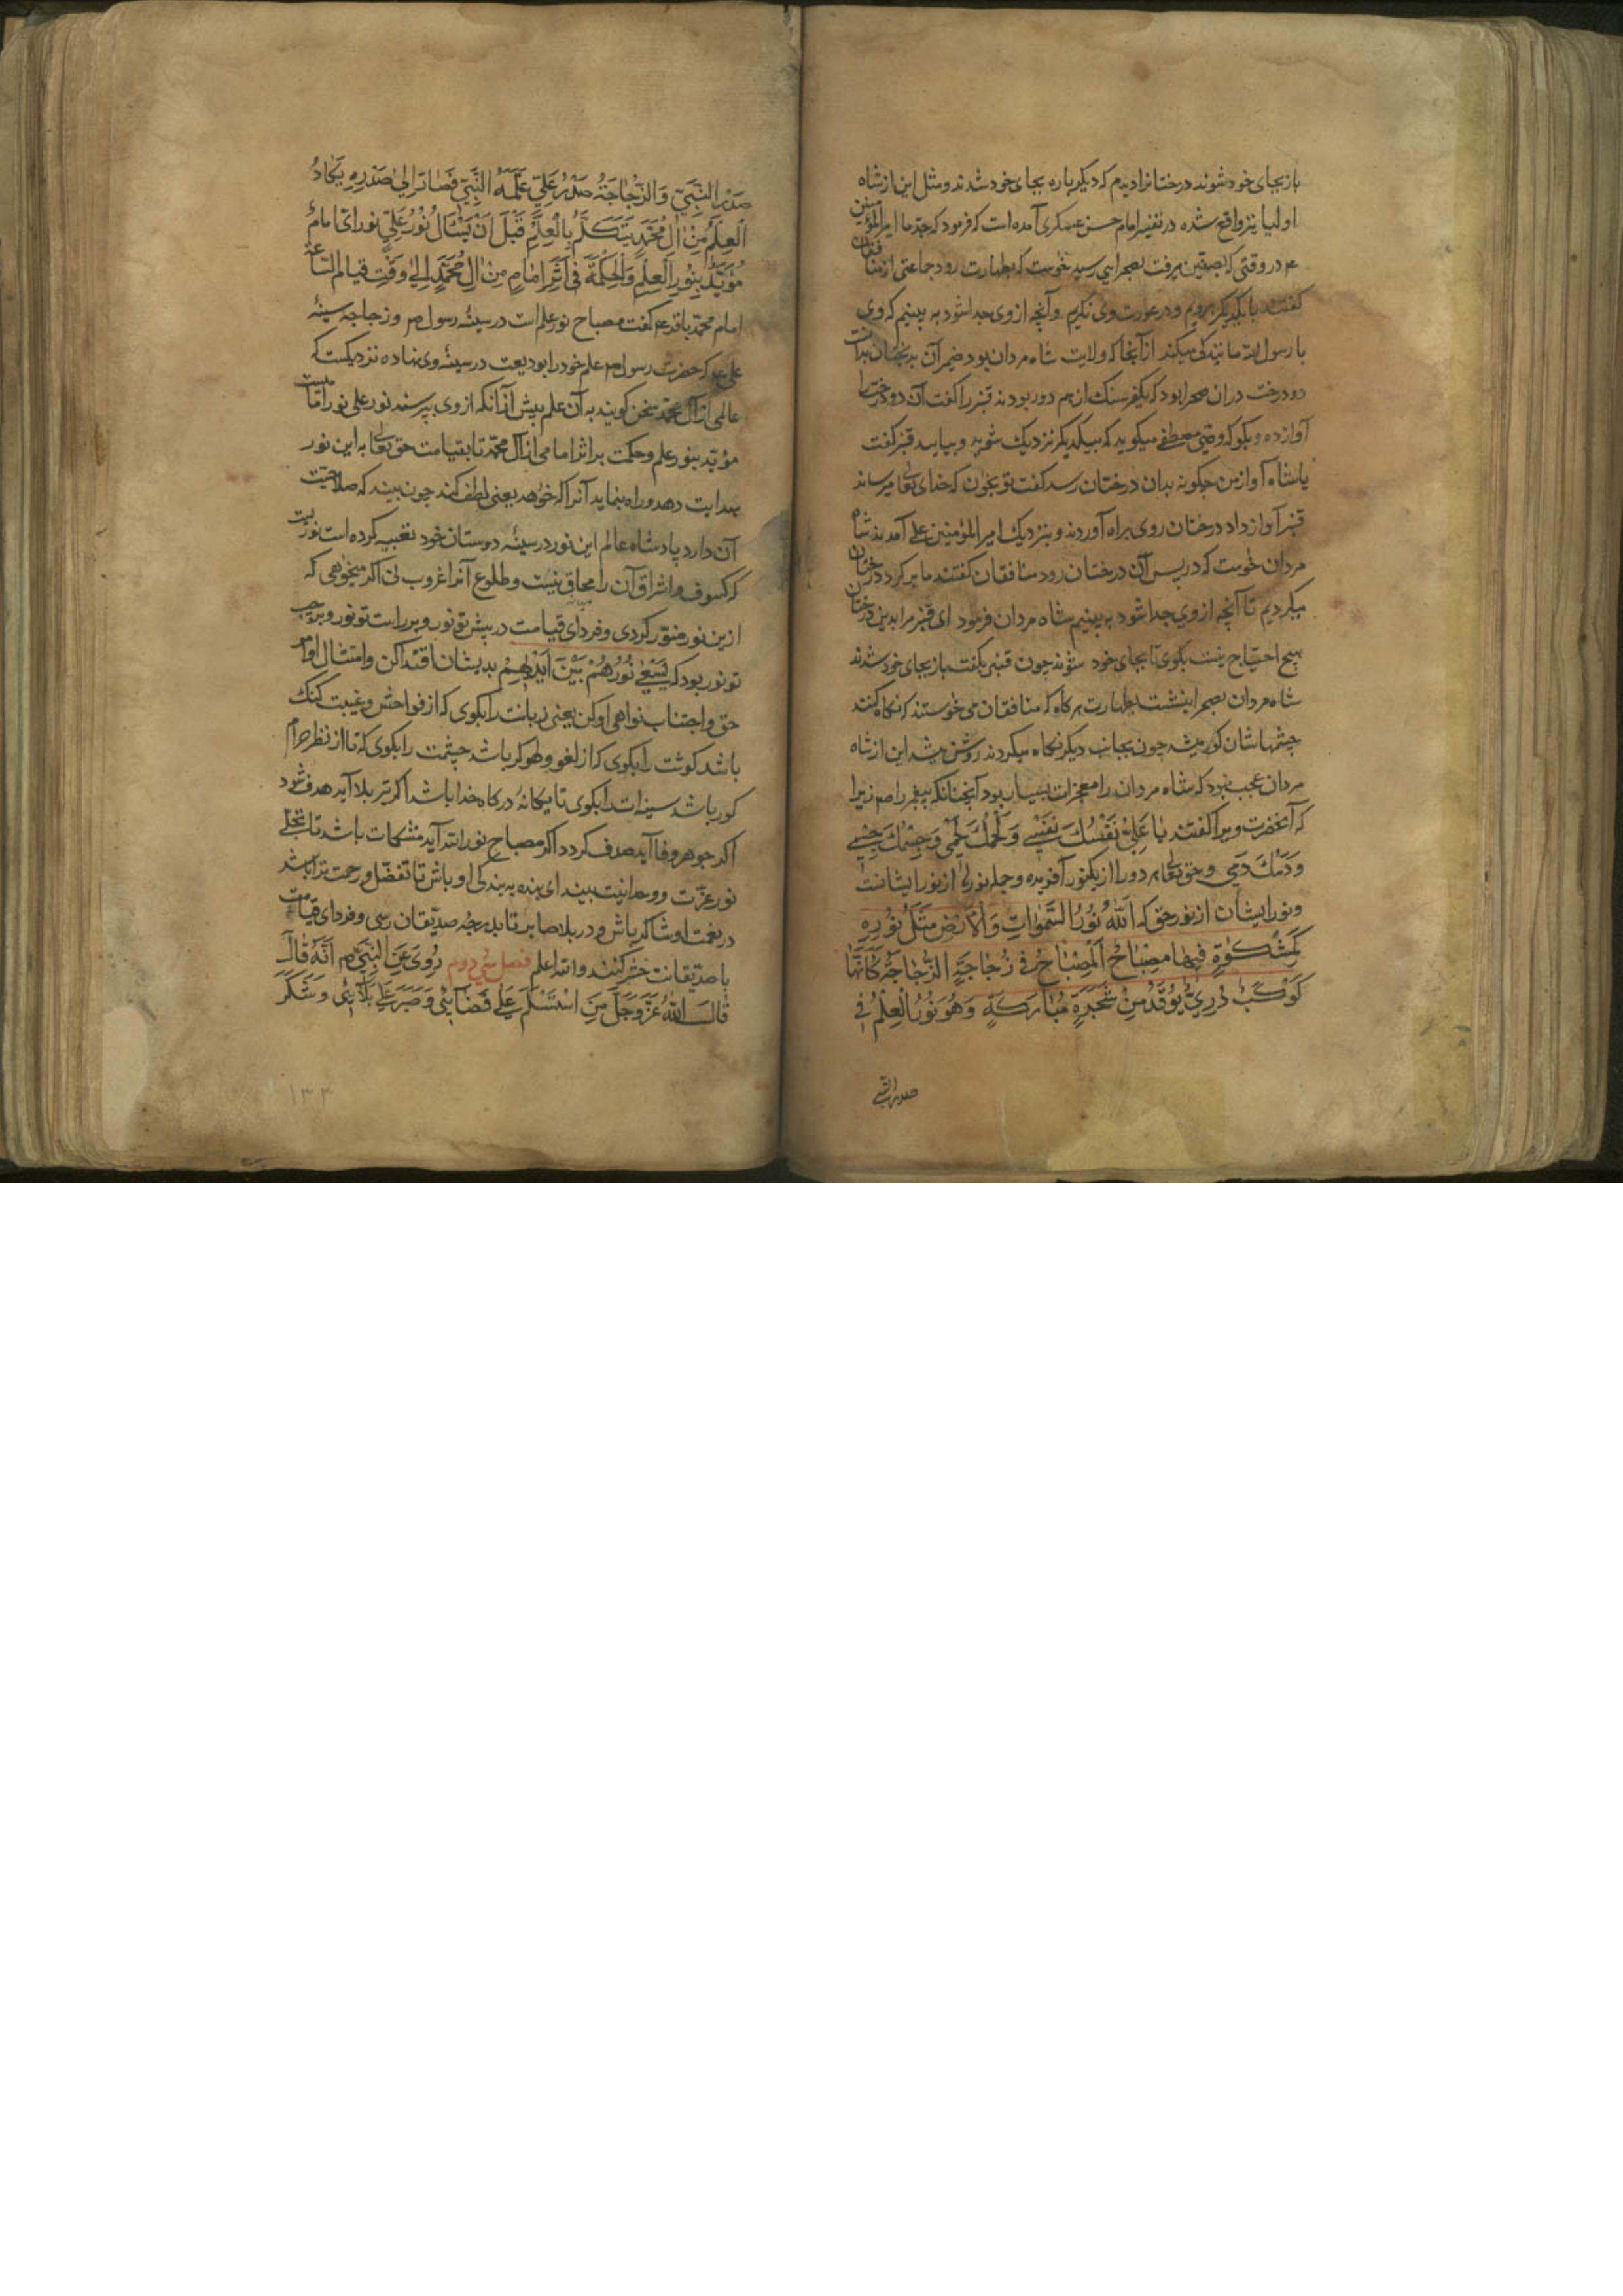 باز بجای خود شوند درختانرا دیدم که دیکر باره بجای خود شدند و مثل این از شاه
اولیا نیز واقع شده در تفسیر امام حسن عسکری آمده است که فرمود که جد ما امیرالمؤمنین
ع در وقتی که بصفین میرفت بصحرایی رسید خوست که بطهارت رود جماعتی از منافقان
کفتند با یکدیکر برویم و در عورت وی نکریم و آنچه از وی جدا شود به بینیم که وی
با رسول الله مانندکی میکند از آنجا که ولایت شاه مردان بود ضمیر آن بدبختان بدانست
دو درخت در ان صحرا بود که یکفرسنک از هم دور بودند قنبر را کفت آن دو درخت را
آواز ده و بکو که وصی مصطفی میکوید که بیکدیکر نزدیک شوید و بیایید قنبر کفت
یا شاه آواز من چکونه بدان درختان رسد کفت تو بخوان که خدای تعالی میرساند
قنبر آواز داد درختان روی براه آوردند و بنزدیک امیر المؤمنین علی آمدند شاه
مردان خوست که در پس آن درختان رود منافقان کفتند ما بر کرد درختان
میکردیم تا آنچه از وی جدا شود به بینیم شاه مردان فرمود ای قنبر مرا بدین درختان
هیچ احتیاج نیست بکوی تا بجای خود شوند چون قنبر بکفت باز بجای خود شدند
شاه مردان بصحرا بنشست بطهارت هرکاه که منافقان می خوستند که نکاه کنند
چشمهاشان کور میشد چون بجانب دیکر نکاه میکردند روشن میشد این از شاه
مردان عجب نبود که شاه مردان را معجزات بسیار بود آنچنانکه پیغمبر را صم زیرا
که آنحضرت ویرا کفتند یا عَلِیُّ نَفْسُكَ نَفْسِی وَلَحْمُكَ لَحْمِی وَجِسْمُكَ جِسْمِی
وَدَمُكَ دَمِی و حق تعالی هر دو را از یکنور آفریده و جمله نورها از نور ایشانست
و نور ایشان از نور حق که اَللّٰهُ نُورُ السَّمٰوَاتِ وَالْاَرْضِ مَثَلُ نُورِهِ
كَمِشْكٰوةٍ فِیهَا مِصْبَاحٌ اَلْمِصْبَاحُ فِی زُجَاجَةٍ الزُّجَاجَةُ كَاَنَّهَا
كَوْكَبٌ دُرِّیٌّ یُوقَدُ مِنْ شَجَرَةٍ مُبَارَكَةٍ وَهُوَ نُورُ الْعِلْمِ فِی
صدر النبی
صَدْرِ النَّبِیِّ وَالزُّجَاجَةُ صَدْرُ عَلِیٍّ عَلَّمَهُ النَّبِیُّ فَصَارَ اِلٰی صَدْرِهِ یَكَادُ
الْعِلْمُ مِنْ اٰلِ مُحَمَّدٍ یَتَكَلَّمُ بِالْعِلْمِ قَبْلَ اَنْ یُسْئَالَ نُورُ عَلِیٍّ نور ای امامٌ
مُؤَیَّدٌ بِنُورِ الْعِلْمِ وَالْحِكْمَةِ فِی اَثَرِ اِمَامٍ مِنْ اٰلِ مُحَمَّدٍ اِلٰی وَقْتِ قیام السّاعة
امام محمد باقر ع کفت مصباح نور علم است در سینۀ رسول صم و زجاجه سینۀ
علی ع که حضرت رسول صم علم خود را بودیعت در سینۀ وی نهاده نزدیکست که
عالمی از آل محمد سخن کویند به آن علم پیش از آنکه از وی بپرسند نور علی نور امامیست
مؤید بنور علم و حکمت بر اثر امامی از آل محمد تا بقیامت حق تعالی به این نور
هدایت دهد و راه نماید آنرا که خواهد یعنی لطف کند چون بیند که صلاحیت
آن دارد پادشاه عالم این نور در سینۀ دوستان خود تعبیه کرده است نوریست
که کسوف و اشراق آن را محاق نیست و طلوع آنرا غروب نی اکر میخواهی که
ازین نور منوّر کردی و فردای قیامت در پیش تو نور و بر راست تو نور و بر چپ
تو نور بود که یَسْعٰی نُورُهُمْ بَیْنَ اَیْدِیهِمْ بدیشان اقتدا کن و امتثال اوامر
حق و اجتناب نواهی او کن یعنی زبانت را بکوی که از فواحش و غیبت کنک
باشد کوشت را بکوی که از لغو و لهو کر باشد چشمت را بکوی که تا از نظر حرام
کور باشد سینه ات را بکوی تا یکانۀ درکاه خدا باشد اکر تیر بلا آید هدف شود
اکر جوهر وفا آید صدف کردد اکر مصباح نور الله آید مشکات باشد تا تجلی
نور عزّت و وحدانیت بیند ای بنده به بندکی او باش تا تفضّل و رحمت ترا باشد
در نعمت او شاکر باش و در بلا صابر تا بدرجۀ صدّیقان رسی و فردای قیامت
با صدیقانت حشر کنند والله اعلم فصل سی دوم رُوِیَ عَنِ النَّبِیِّ صم اَنَّهُ قَالَ
قَالَ اللّٰهُ عَزَّ وَجَلَّ مَنِ اسْتَسْلَمَ عَلٰی قَضَآئِی وَصَبَرَ عَلٰی بَلَآئِی وَشَكَرَ
۱۳۳